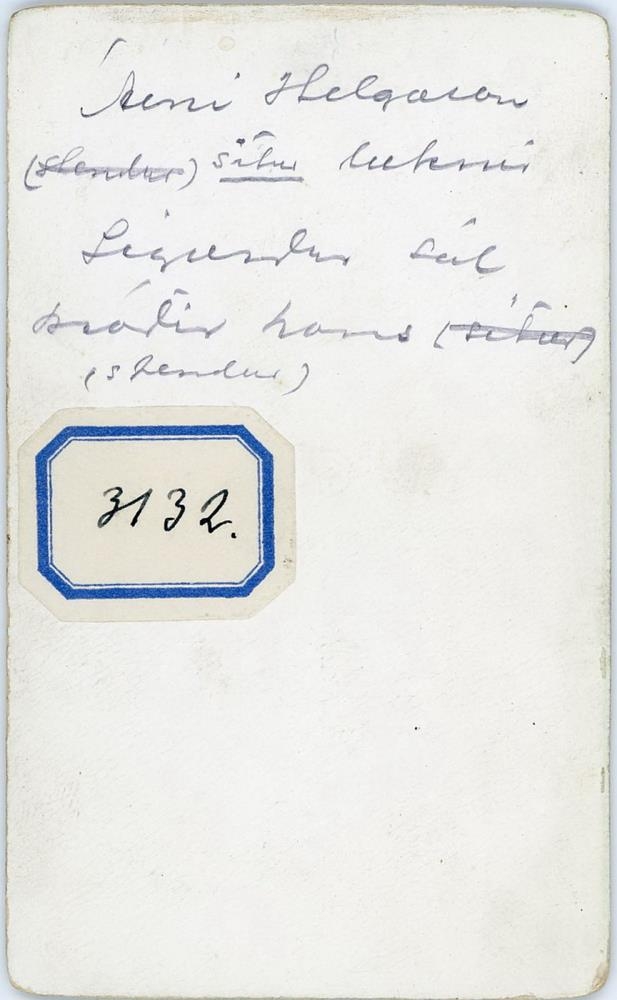 Árni Helgason
(stendur) situr læknir
Sigurður sál
bróðir hans (situr)
(stendur)
3132.